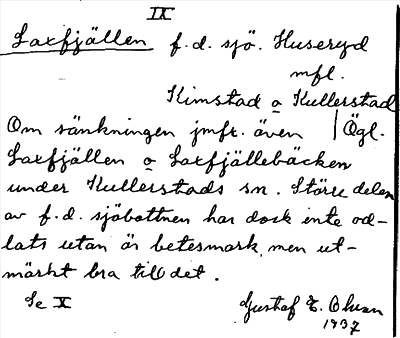 IX
Laxfjällen f.d. sjö. Huseryd
mfl.
Kimstad o Kullerstad
Om sänkningen jmfr. även | Ögl.
Laxfjällen o Laxfjällebäcken
under Kullerstads sn. Större delen
av f.d. sjöbottnen har dock inte od-
lats utan är betesmark, men ut-
märkt bra till det.
Se X Gustaf E. Ohlson
1937